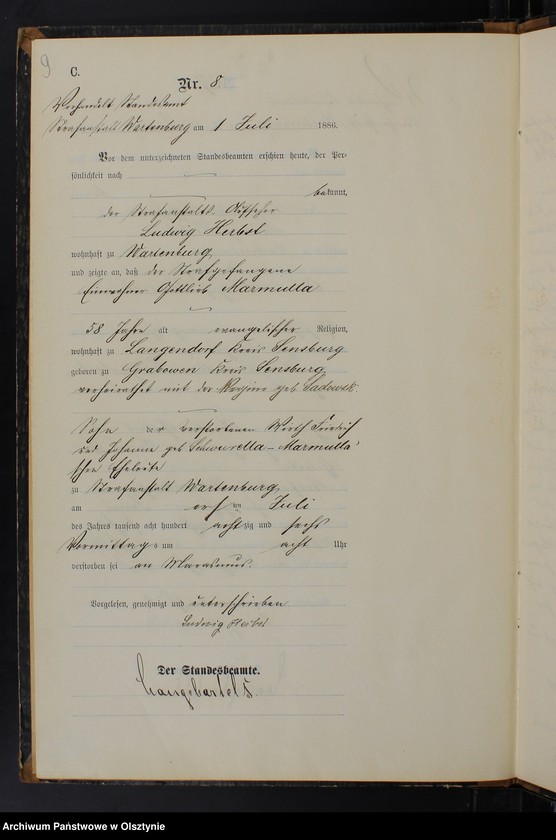 9
C.
Nr. 8
Standesamt
Strafanstalt Wartenburg am 1 Juli 1886.
Vor dem unterzeichneten Standesbeamten erschien heute, der Per-
sönlichkeit nach
bekannt,
der Strafanstalts Aufseher
Ludwig Herbst
wohnhaft zu Wartenburg
und zeigte an, daß der Strafgefangene
Einwohner Gottlieb Marmulla
58 Jahre alt evangelischer Religion,
wohnhaft zu Langendorf Kreis Sensburg
geboren zu Grabowen Kreis Sensburg
verheirathet mit der Regine geb
Sohn der verstorbenen Wirth Friedrich
und Johanna geb Marmulla'
schen Eheleute
zu Strafanstalt Wartenburg
am Juli
des Jahres tausend acht hundert achtzig und sechs
Vormittags um acht Uhr
verstorben sei an Marasmus.
Vorgelesen, genehmigt und unterschrieben
Ludwig Herbst
Der Standesbeamte.
Langebartels.
Archiwum Państwowe w Olsztynie